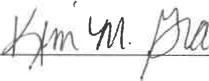 Kim M. Gra